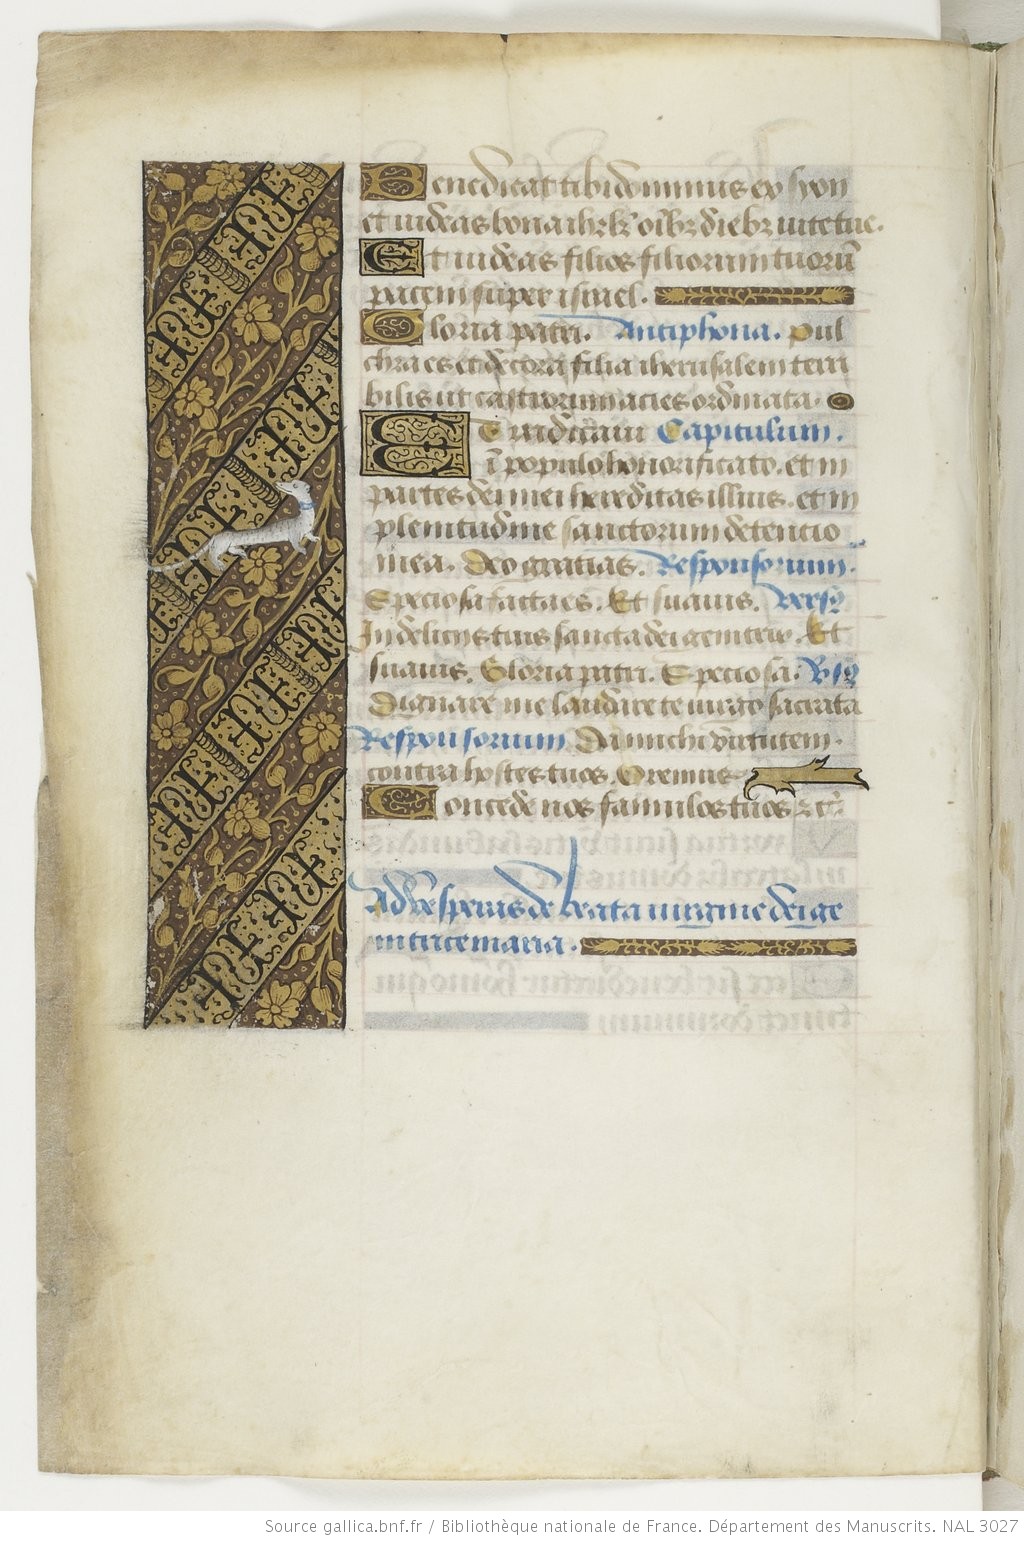 Benedicat tibi dominus ex syon
et uideas bona ihrl'z oib'z dieb'z uite tue.
Et uideas filios filiorum tuorū
pacem super israel.
Gloria patri. Antiphona. Pul
chra es et decora filia iherusalem terri
bilis ut castrorum acies ordinata.
Et radicaui Capitulum.
ī populo honorificato. et in
partes dei mei hereditas illius. et in
plenitudine sanctorum detencio
mea. Deo gratias. Responsorium.
Speciosa facta es. Et suauis. Versꝰ
In deliciis tuis sancta dei genitrix. Et
suauis. Gloria patri. Speciosa. Vsꝰ
Dignare me laudare te uirgo sacrata
Responsorium Da michi virtutem
contra hostes tuos. Oremus
Concede nos famulos tuos
Ad vesperas de beata uirgine dei ge
nitrice maria.
Source gallica.bnf.fr / Bibliothèque nationale de France. Département des Manuscrits. NAL 3027